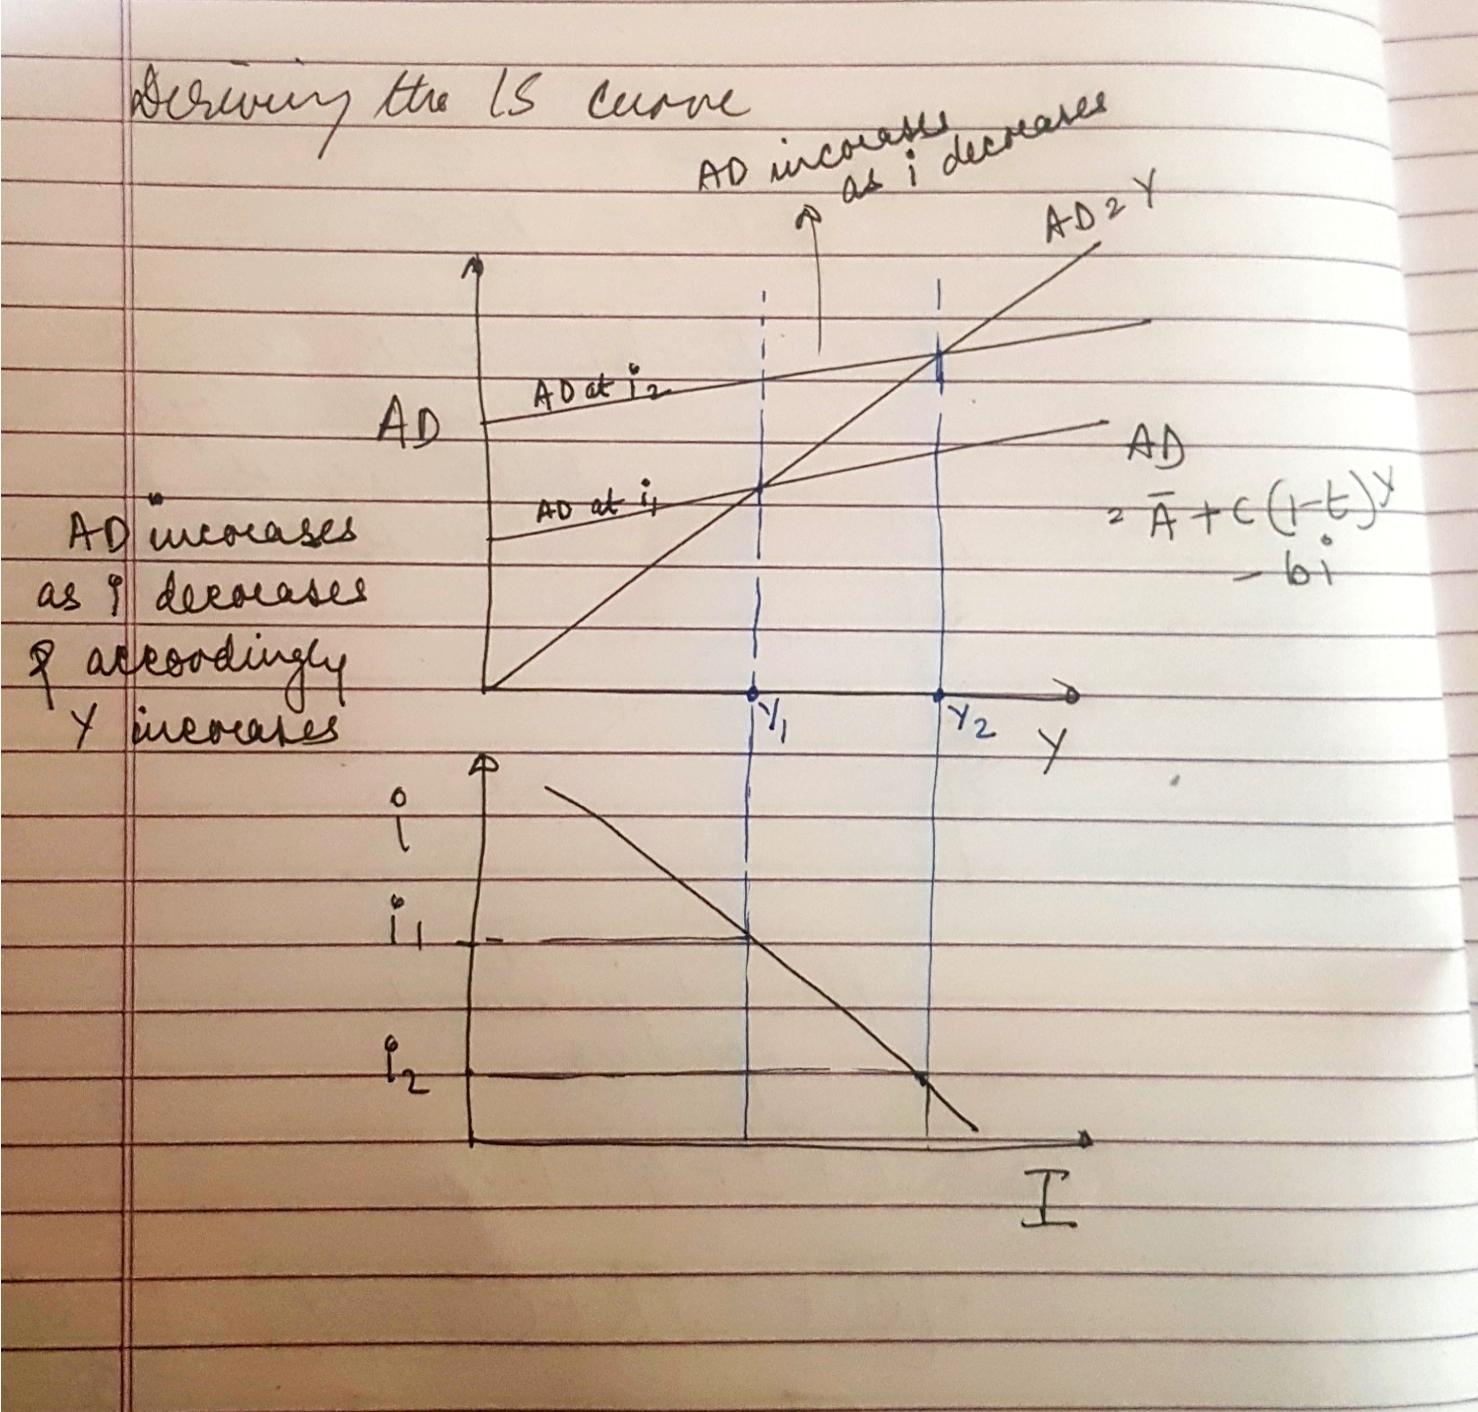 Deriving the IS curve
AD increases
as i decreases
AD = Y
AD at i2
AD
AD at i1
AD
= Ā + c(1-t)Y
- bi
AD increases
as i decreases
& accordingly
Y increases
Y1
Y2
Y
i
i1
i2
I